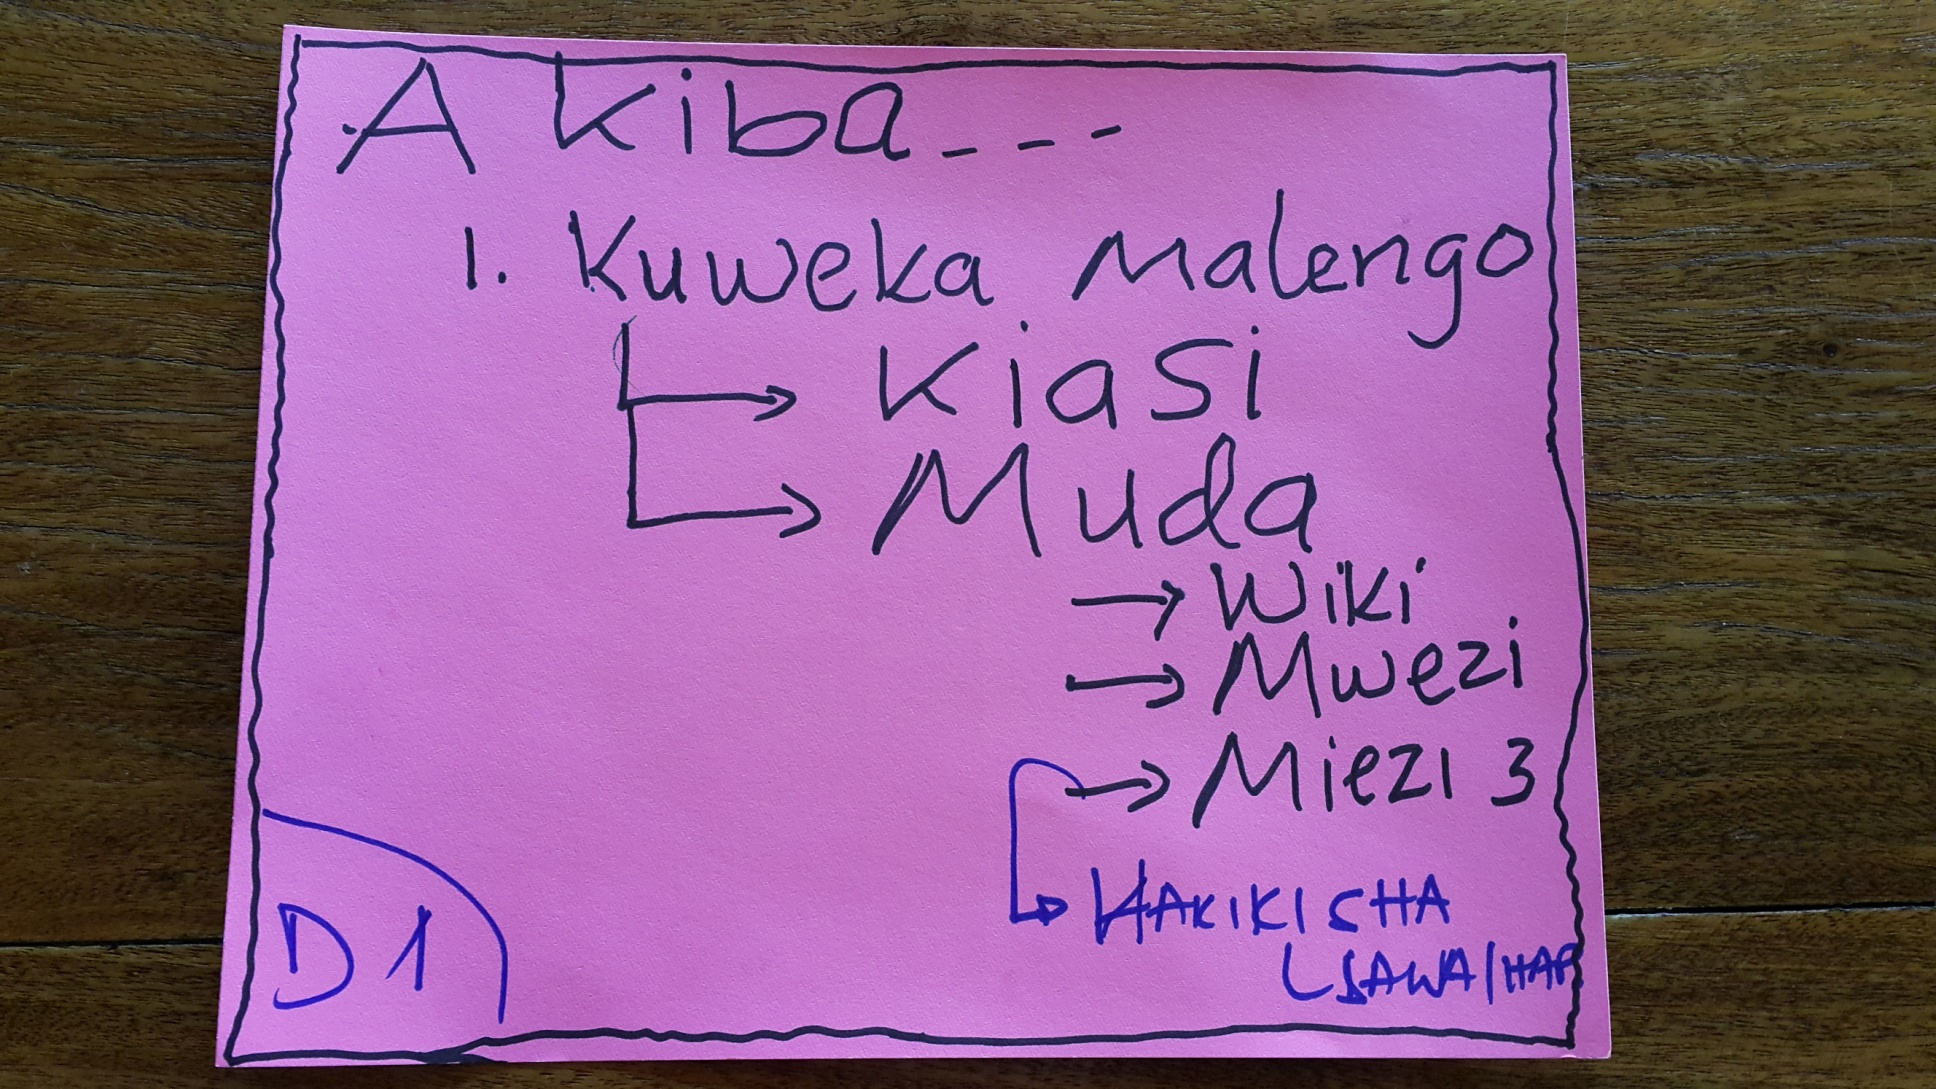 Akiba - - -
1. Kuweka Malengo
→ Kiasi
→ Muda
→ Wiki
→ Mwezi
→ Miezi 3
→ HAKIKISHA
SAWA/HAP
D1